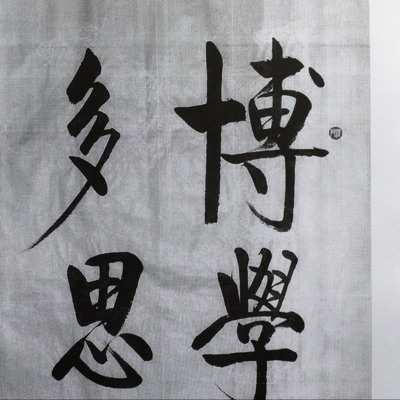 博學
多思